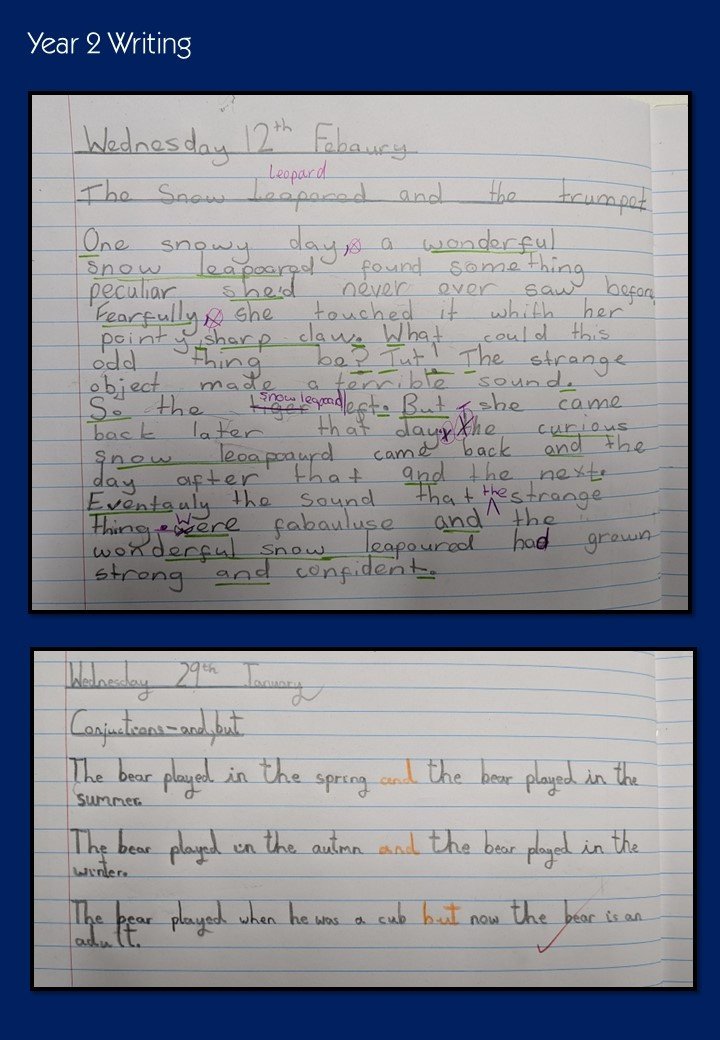 Year 2 Writing
Wednesday 12th Febaury
Leopard
The Snow Leapored and the trumpet
One snowy day, a wonderful
snow leapoared found something
peculiar she'd never ever saw before
Fearfully, she touched it whith her
pointy, sharp claw. What could this
odd thing be? Tut! The strange
object made a terrible sound.
snow leopard
So the tiger left. But she came
back later that day. The curious
snow leoapoaurd came back and the
day after that and the next.
the
Eventauly the sound that strange
thing were fabauluse and the
wonderful snow leapoured had grown
strong and confident.
Wednesday 29th January
Conjuctions-and,but
The bear played in the spring and the bear played in the
summer.
The bear played in the autmn and the bear played in the
winter.
The bear played when he was a cub but now the bear is an
adult.